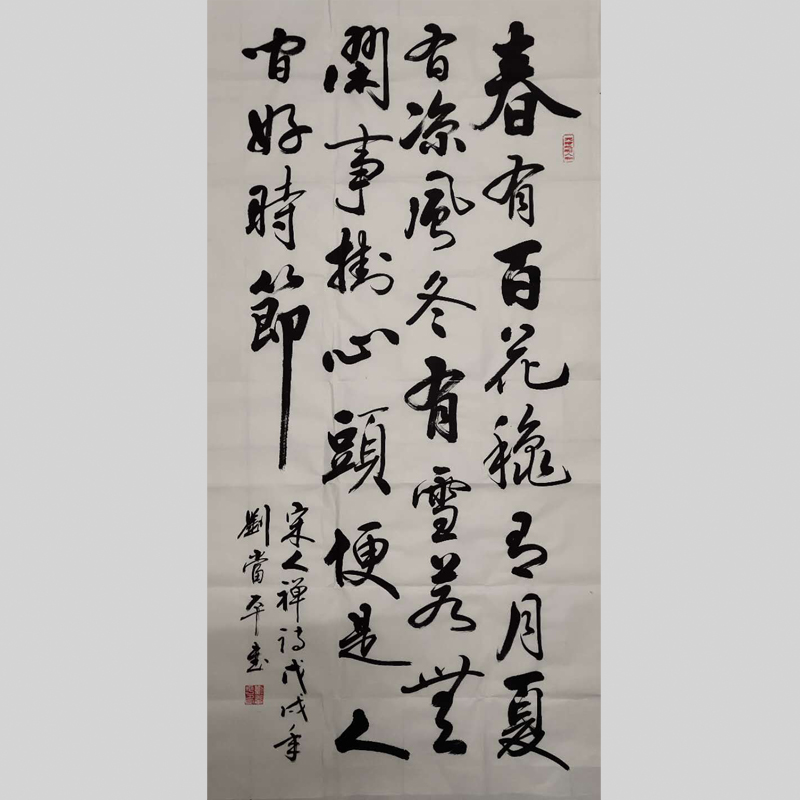 春有百花穐有月夏
有凉風冬有雪若無
閑事掛心頭便是人
间好時節
宋人禅诗戊戌年
劉當平書